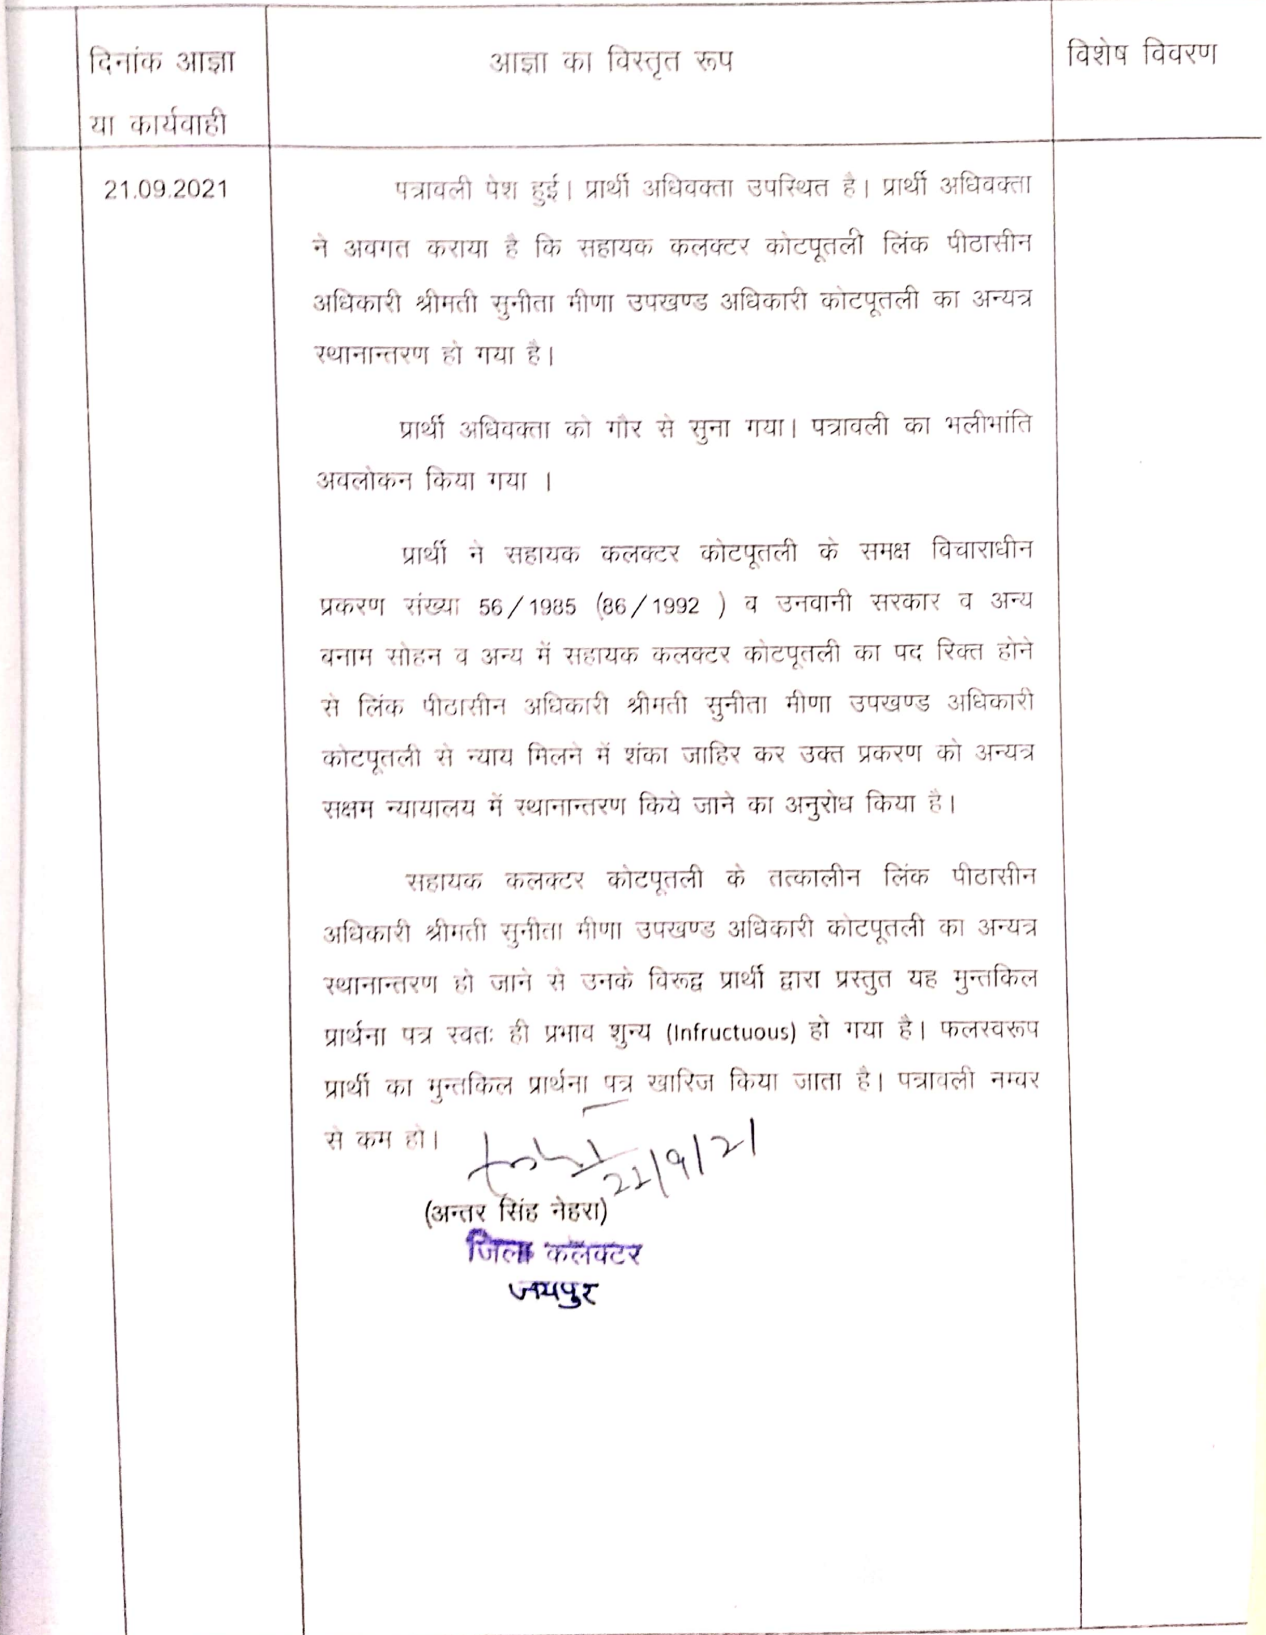 दिनांक आज्ञा
या कार्यवाही
आज्ञा का विस्तृत रूप
विशेष विवरण
21.09.2021
पत्रावली पेश हुई। प्रार्थी अधिवक्ता उपस्थित है। प्रार्थी अधिवक्ता
ने अवगत कराया है कि सहायक कलक्टर कोटपूतली लिंक पीठासीन
अधिकारी श्रीमती सुनीता मीणा उपखण्ड अधिकारी कोटपूतली का अन्यत्र
स्थानान्तरण हो गया है।
प्रार्थी अधिवक्ता को गौर से सुना गया। पत्रावली का भलीभांति
अवलोकन किया गया ।
प्रार्थी ने सहायक कलक्टर कोटपूतली के समक्ष विचाराधीन
प्रकरण संख्या 56/1985 (86/1992 ) व उनवानी सरकार व अन्य
बनाम सोहन व अन्य में सहायक कलक्टर कोटपूतली का पद रिक्त होने
से लिंक पीठासीन अधिकारी श्रीमती सुनीता मीणा उपखण्ड अधिकारी
कोटपूतली से न्याय मिलने में शंका जाहिर कर उक्त प्रकरण को अन्यत्र
सक्षम न्यायालय में स्थानान्तरण किये जाने का अनुरोध किया है।
सहायक कलक्टर कोटपूतली के तत्कालीन लिंक पीठासीन
अधिकारी श्रीमती सुनीता मीणा उपखण्ड अधिकारी कोटपूतली का अन्यत्र
स्थानान्तरण हो जाने से उनके विरूद्व प्रार्थी द्वारा प्रस्तुत यह मुन्तकिल
प्रार्थना पत्र स्वतः ही प्रभाव शुन्य (Infructuous) हो गया है। फलस्वरूप
प्रार्थी का मुन्तकिल प्रार्थना पत्र खारिज किया जाता है। पत्रावली नम्बर
से कम हो।
21/9/21
(अन्तर सिंह नेहरा)
जिला कलक्टर
जयपुर